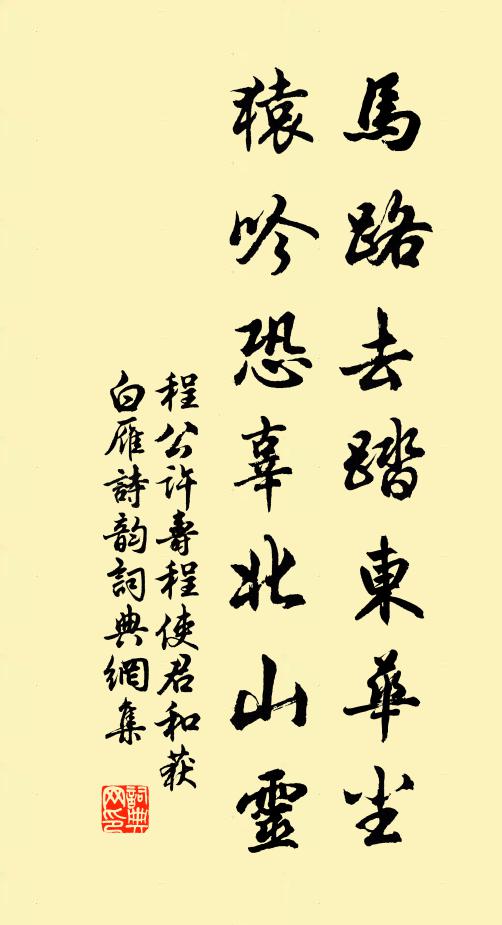 馬路去踏東華尘
猿吟恐辜北山靈
程公许寿程使君和获
白雁詩韵詞典網集
詞典
网印